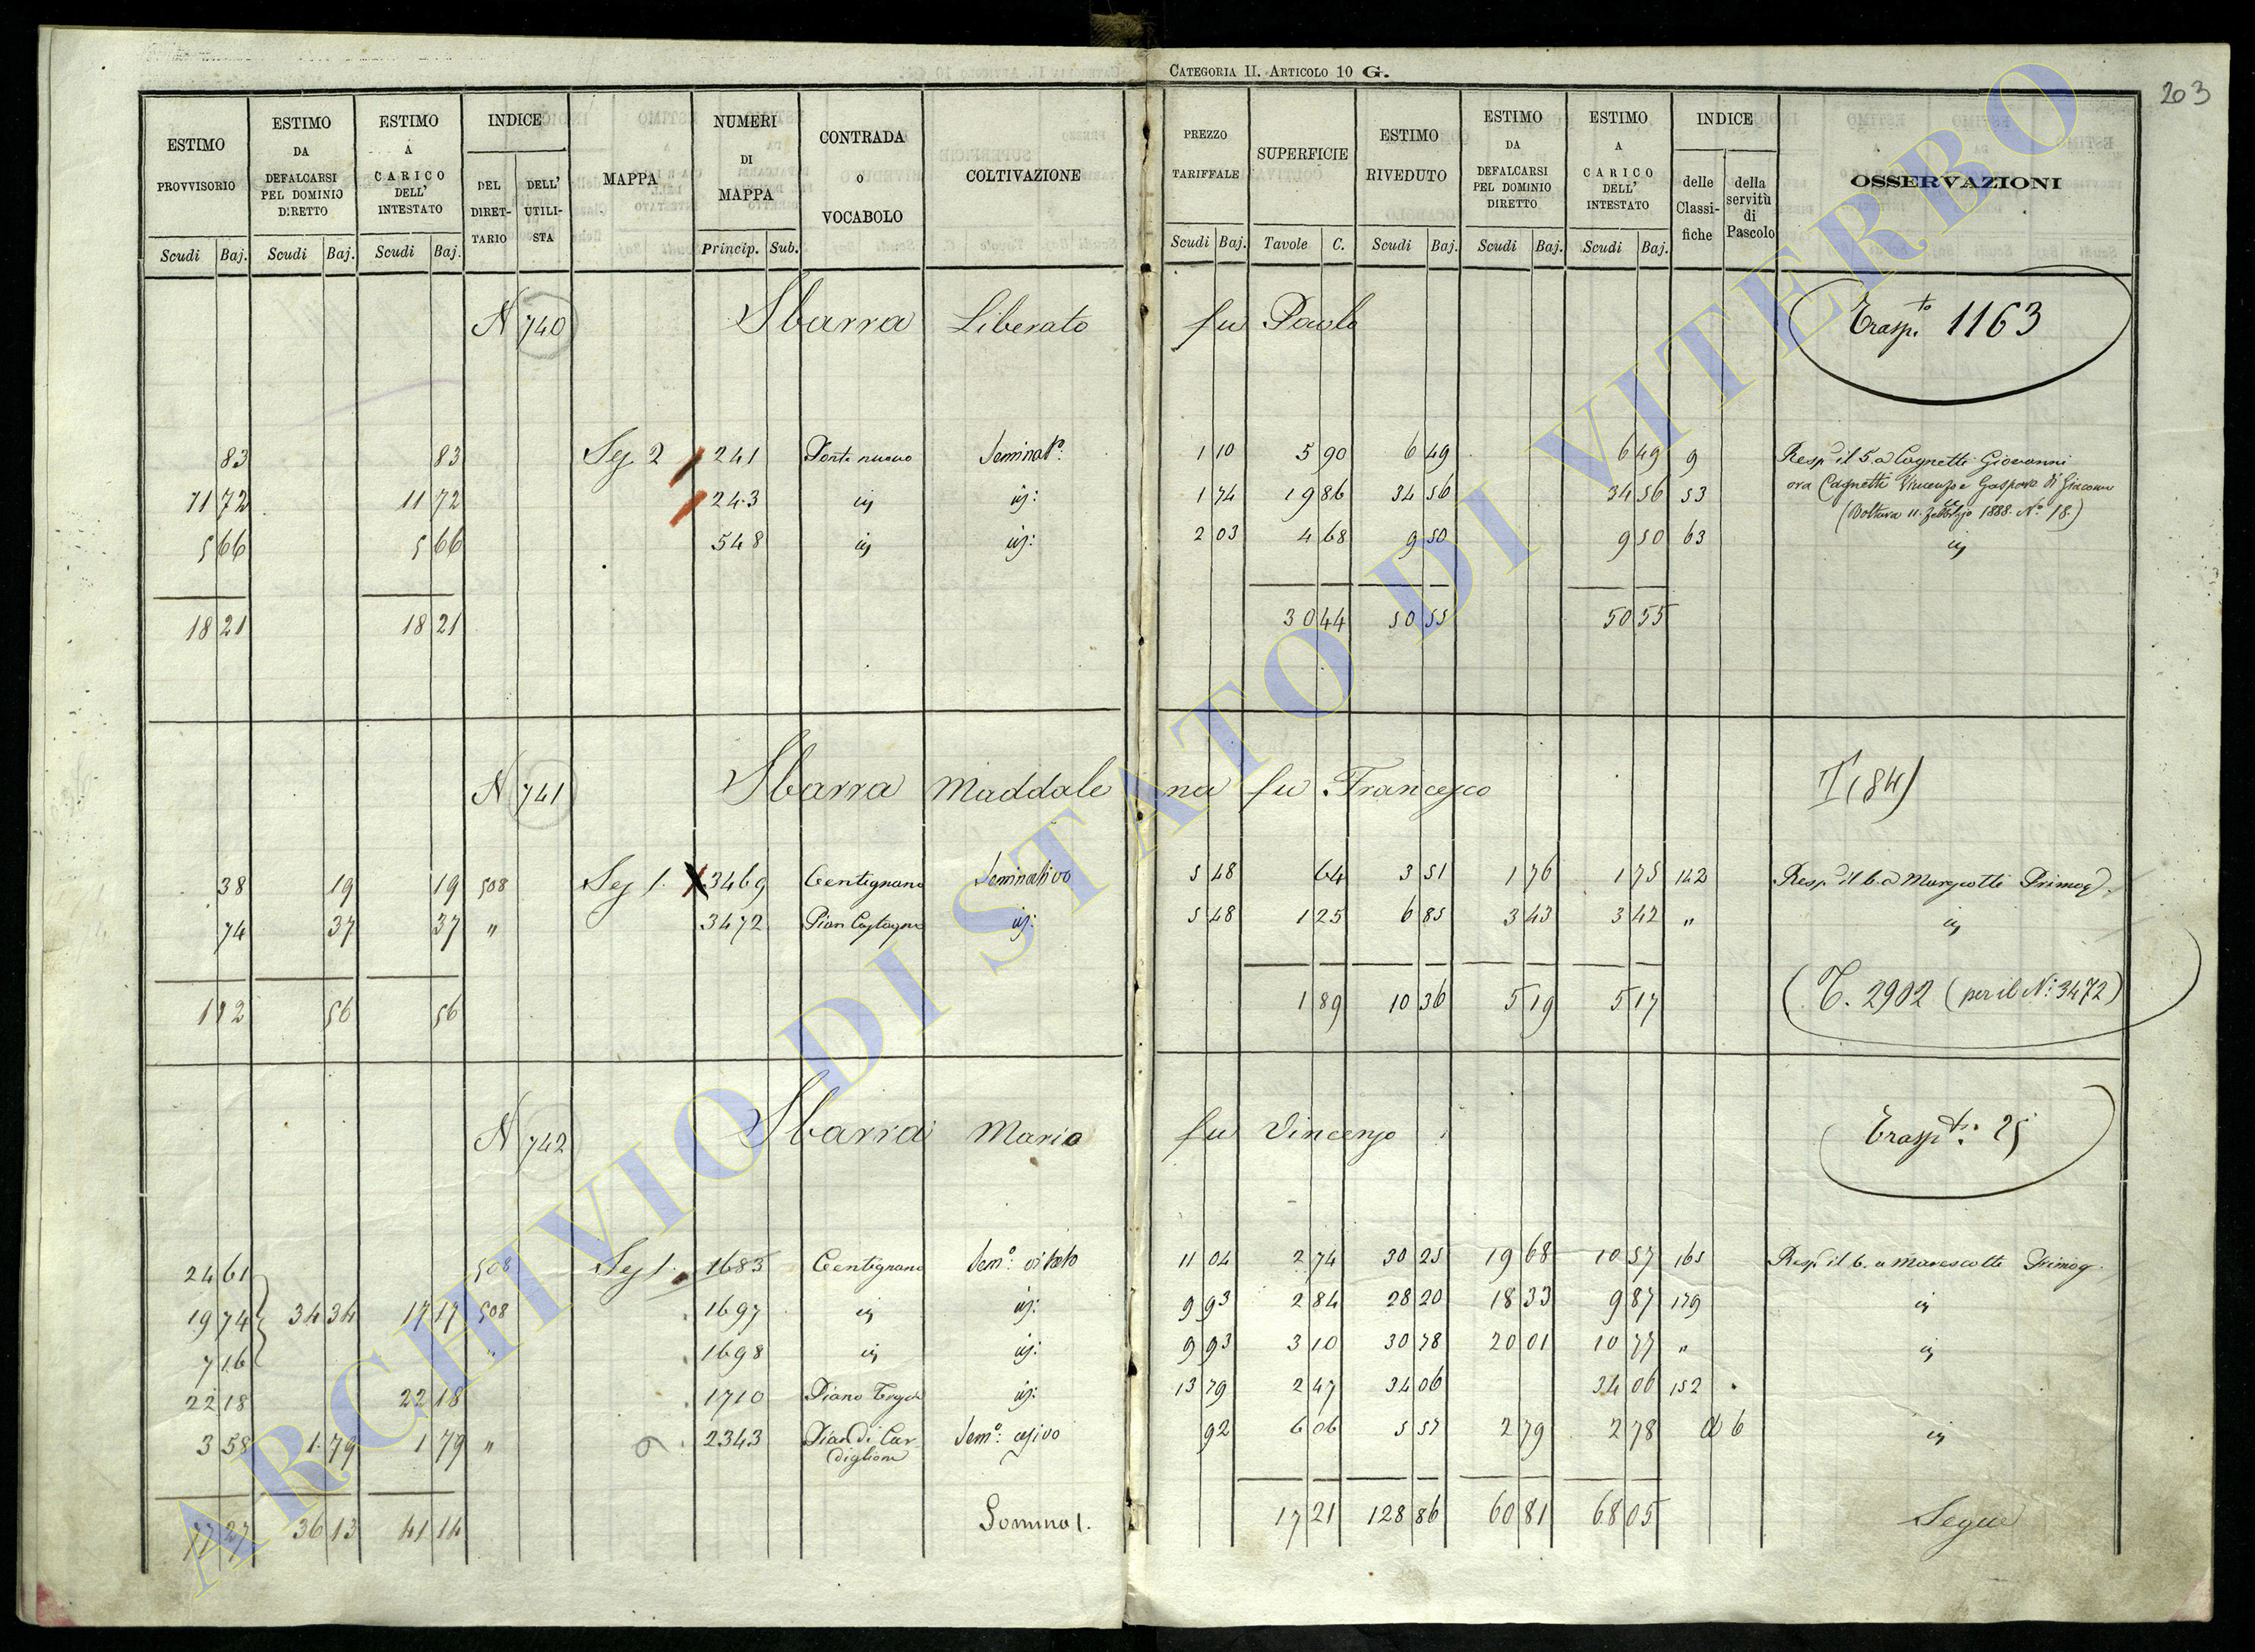 CATEGORIA II. ARTICOLO 10 G.
203
ESTIMO PROVVISORIO
ESTIMO DA DEFALCARSI PEL DOMINIO DIRETTO
ESTIMO A CARICO DELL' INTESTATO
INDICE
DEL DIRET-TARIO
DELL' UTILI-STA
MAPPA
NUMERI DI MAPPA
CONTRADA O VOCABOLO
COLTIVAZIONE
PREZZO TARIFFALE
SUPERFICIE
ESTIMO RIVEDUTO
ESTIMO DA DEFALCARSI PEL DOMINIO DIRETTO
ESTIMO A CARICO DELL' INTESTATO
INDICE
delle Classi-fiche
della servitù di Pascolo
OSSERVAZIONI
Scudi Baj. Scudi Baj. Scudi Baj. Princip. Sub. Scudi Baj. Tavole C. Scudi Baj. Scudi Baj. Scudi Baj.
N 740 Sbarra Liberato fu Paolo Trasp.to 1163
83 83 Sez 2 241 Ponte nuovo Seminat.o 1 10 5 90 6 49 6 49 9 Resp il 5.a Cagnetti Giovanni
11 72 11 72 243 id id: 1 74 19 86 34 56 34 56 53 ora Cagnetti Vincenzo e Gaspare di Giacomo
(Voltura 11. 1888. No 18.)
5 66 5 66 548 id id: 2 03 4 68 9 50 9 50 63 id
18 21 18 21 30 44 50 55 50 55
N 741 Sbarra Maddalena fu Francesco T(84)
38 19 19 508 Sez 1. 3469 Centignano Seminativo 5 48 64 3 51 1 76 1 75 142 Resp il 6.a Marescotti Primog.
74 37 37 " 3472 Pian Castagno id: 5 48 1 25 6 85 3 43 3 42 " id
1 12 56 56 1 89 10 36 5 19 5 17 (T. 2902 (per il No: 3472)
N 742 Sbarra Maria fu Vincenzo Trasp.to: 25
24 61 508 Sez 1. 1683 Centignano Sem.o vitato 11 04 2 74 30 25 19 68 10 57 165 Resp il 6. a Marescotti Primog.
19 74 34 34 17 17 508 1697 id id: 9 93 2 84 28 20 18 33 9 87 179 id
7 16 1698 id id: 9 93 3 10 30 78 20 01 10 77 " id
22 18 22 18 1710 Piano id: 13 79 2 47 34 06 34 06 152
3 58 1. 79 1 79 " 2343 Pian di Car diglione Sem.o 92 6 06 5 57 2 79 2 78 d 6 id
77 27 36 13 41 14 Somma 1. 17 21 128 86 60 81 68 05 Segue
ARCHIVIO DI STATO DI VITERBO